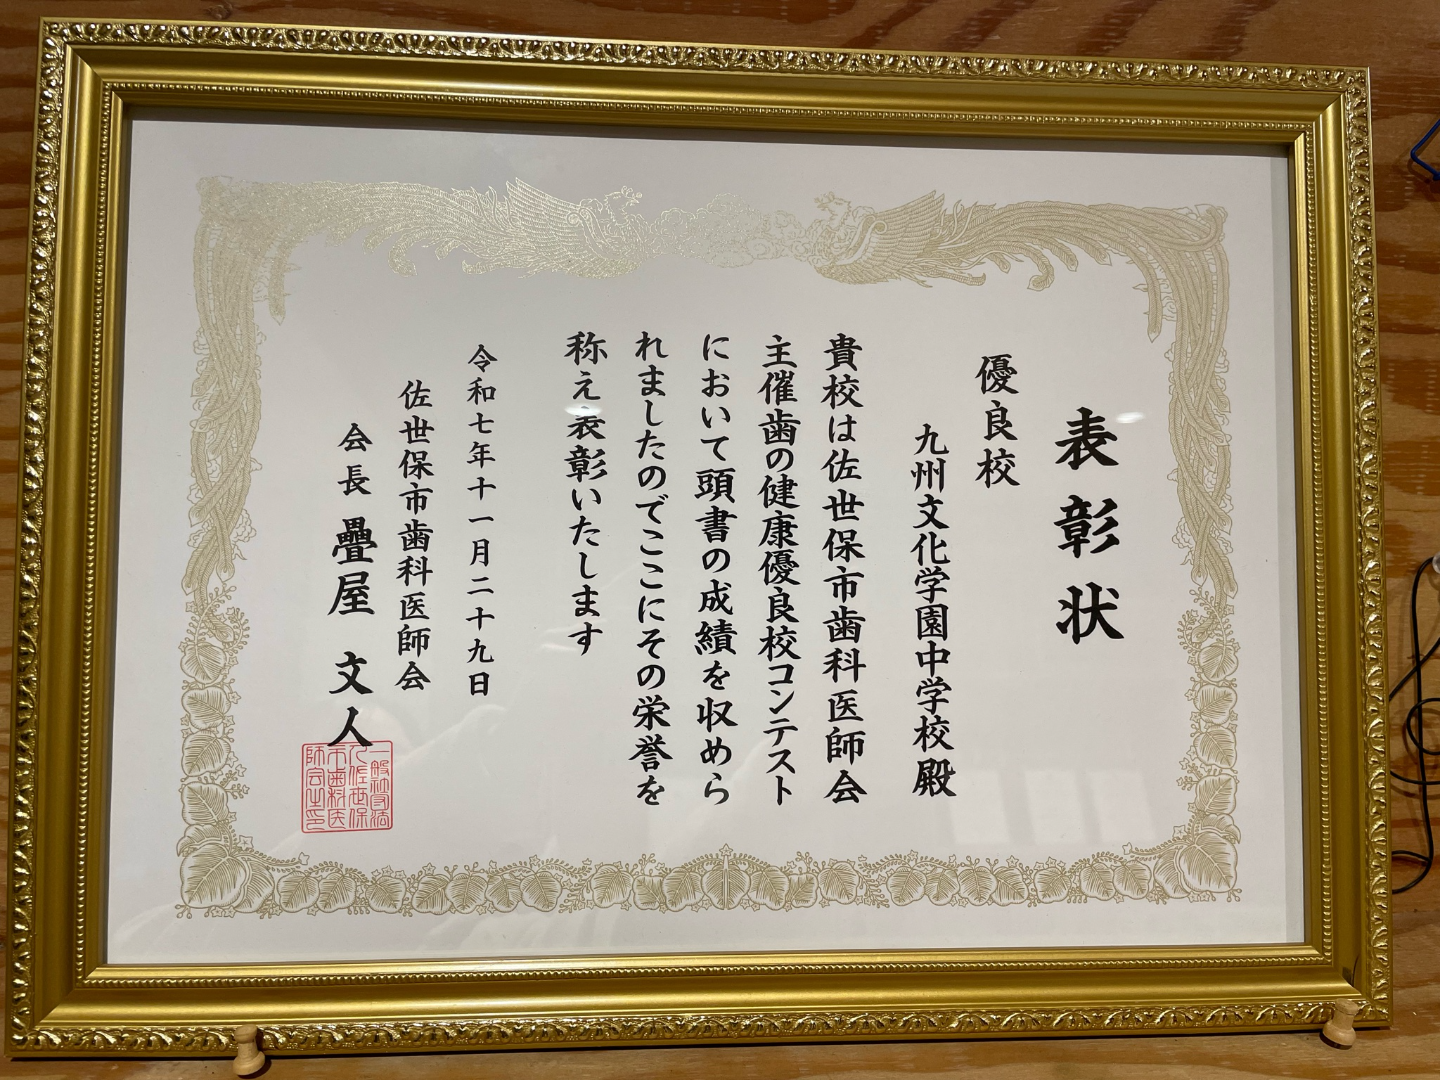 表彰状
優良校
九州文化学園中学校殿
貴校は佐世保市歯科医師会
主催歯の健康優良校コンテスト
において頭書の成績を収めら
れましたのでここにその栄誉を
称え表彰いたします
令和七年十一月二十九日
佐世保市歯科医師会
会長 疊屋 文人
一般社団法
人佐世保
市歯科医
師会之印